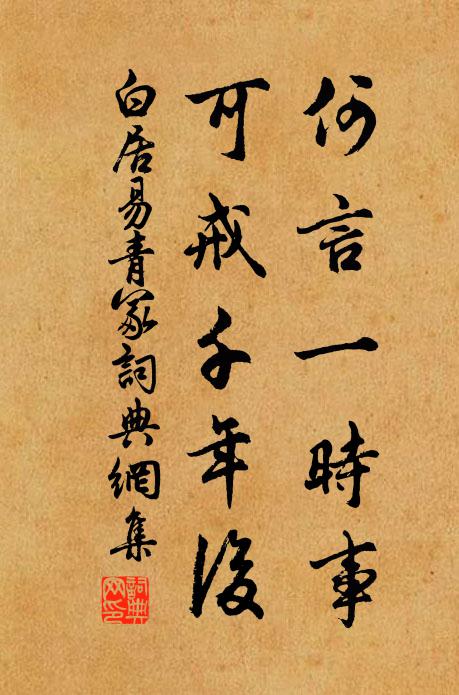 何言一時事
可戒千年後
白居易青冢詞典網集
詞典
網印